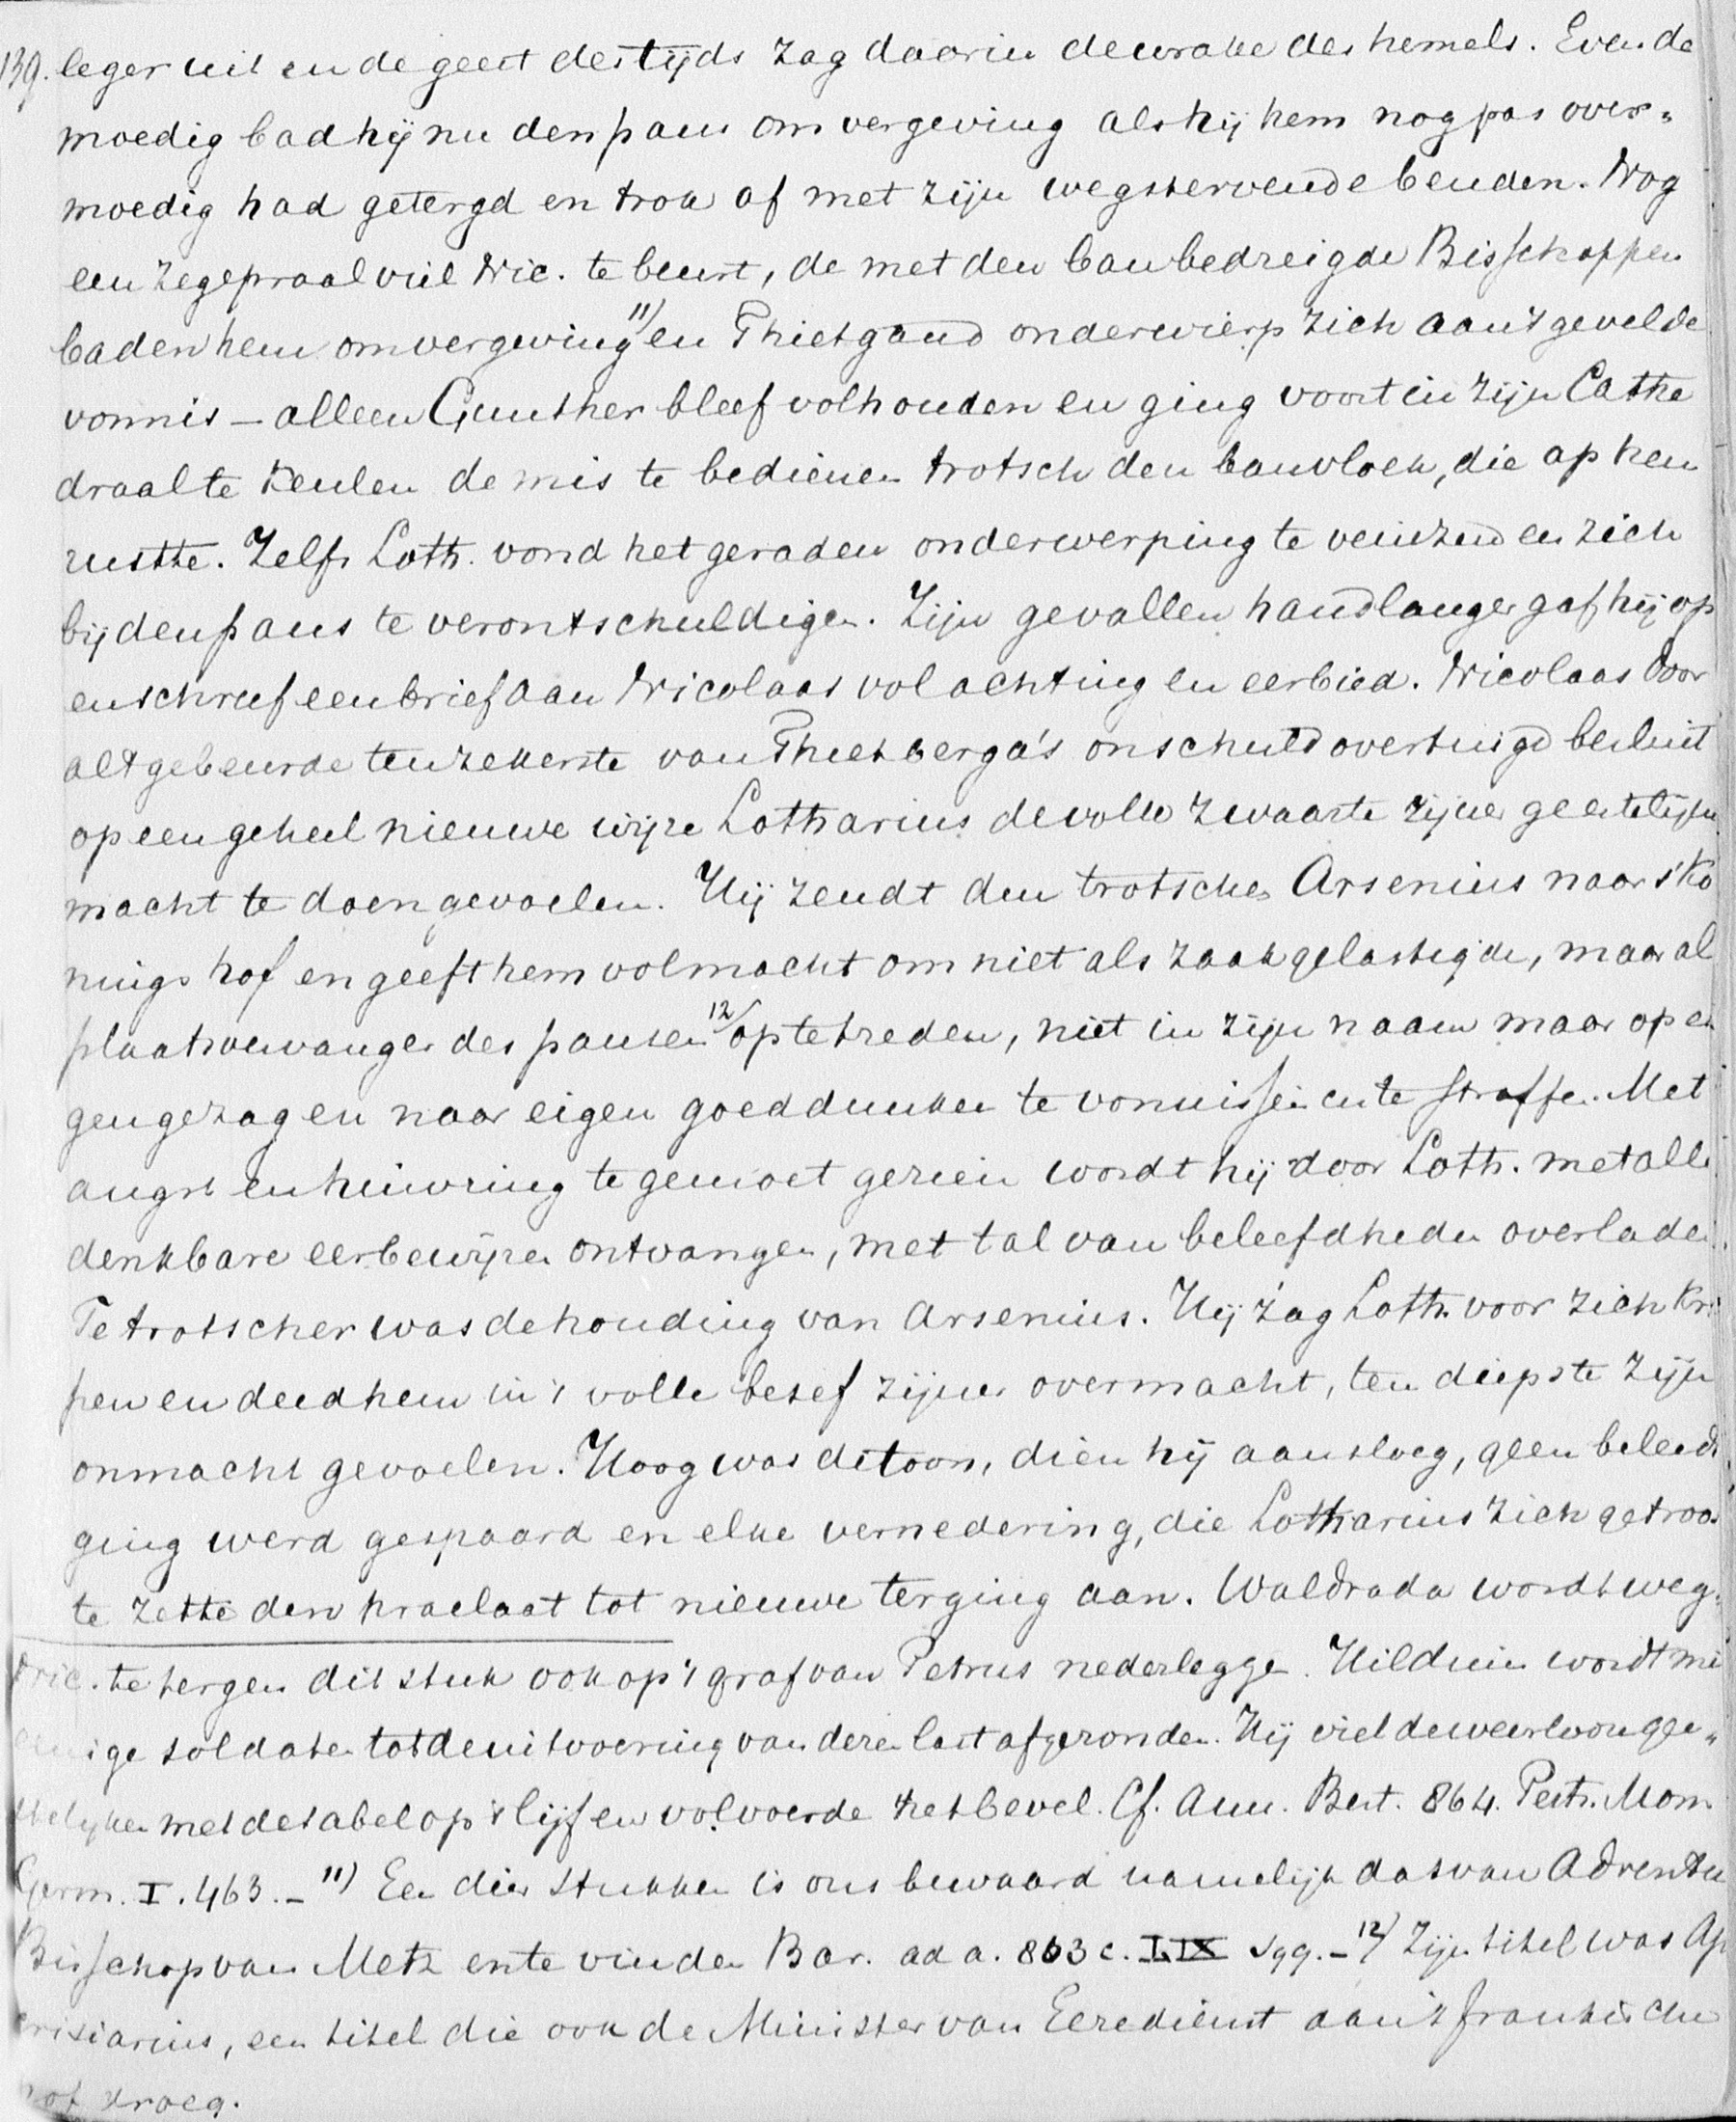 139. leger uit en de geest des tijds zag daarin de wrake des hemels. Even de
moedig bad hij nu den paus om vergeving als hij hem nog pas over-
moedig had getergd en trok af met zijn wegstervende benden. Nog
een zegepraal viel Nic. te beurt, de met den ban bedreigde Bisschoppen
baden hem om vergeving 11) en Thietgaud onderwierp zich aan 't gevelde
vonnis – alleen Gunther bleef volhouden en ging voort in zijn Cathe
draal te Keulen de mis te bedienen trotsch den banvloek, die op hem
rustte. Zelfs Loth. vond het geraden onderwerping te veinzen en zich
bij den paus te verontschuldigen. Zijn gevallen handlanger gaf hij op
en schreef een brief aan Nicolaas vol achting en eerbied. Nicolaas door
al 't gebeurde ten zekerste van Thietberga's onschuld overtuigd besluit
op een geheel nieuwe wijze Lotharius de volle zwaarte zijner geestelijke
macht te doen gevoelen. Hij zendt den trotschen Arsenius naar 's Ko
nings hof en geeft hem volmacht om niet als zaakgelastigde, maar al
plaatsvervanger des pausen 12) op te treden, niet in zijn naam maar op ei
gen gezag en naar eigen goeddunken te vonnissen en te straffen. Met
angst en huivring te gemoet gezien wordt hij door Loth. met alle
denkbare eerbewijzen ontvangen, met tal van beleefdheden overladen.
Te trotscher was de houding van Arsenius. Hij zag Loth. voor zich krui
pen en deed hem in 't volle besef zijner overmacht, ten diepste zijn
onmacht gevoelen. Hoog was de toon, dien hij aansloeg, geen beleedi
ging werd gespaard en elke vernedering, die Lotharius zich getroos
te zette den praelaat tot nieuwe terging aan. Waldrada wordt weg-
Nic. te tergen dit stuk ook op 't graf van Petrus nederleggen. Hilduin wordt me
enige soldaten tot de uitvoering van dezen last afgezonden. Hij viel de weerlooze gee-
stelijken met de sabel op 't lijf en volvoerde het bevel. Cf. Ann. Bert. 864. Pertz. Mom
Germ. I. 463. – 11) Een dier stukken is ons bewaard namelijk dat van Adventiu
Bisschop van Metz en te vinden Bar. ad a. 863 c. LIX sqq. – 12) Zijn titel was Ap
crisiarius, een titel die ook de Minister van Eeredienst aan 't frankische
hof droeg.